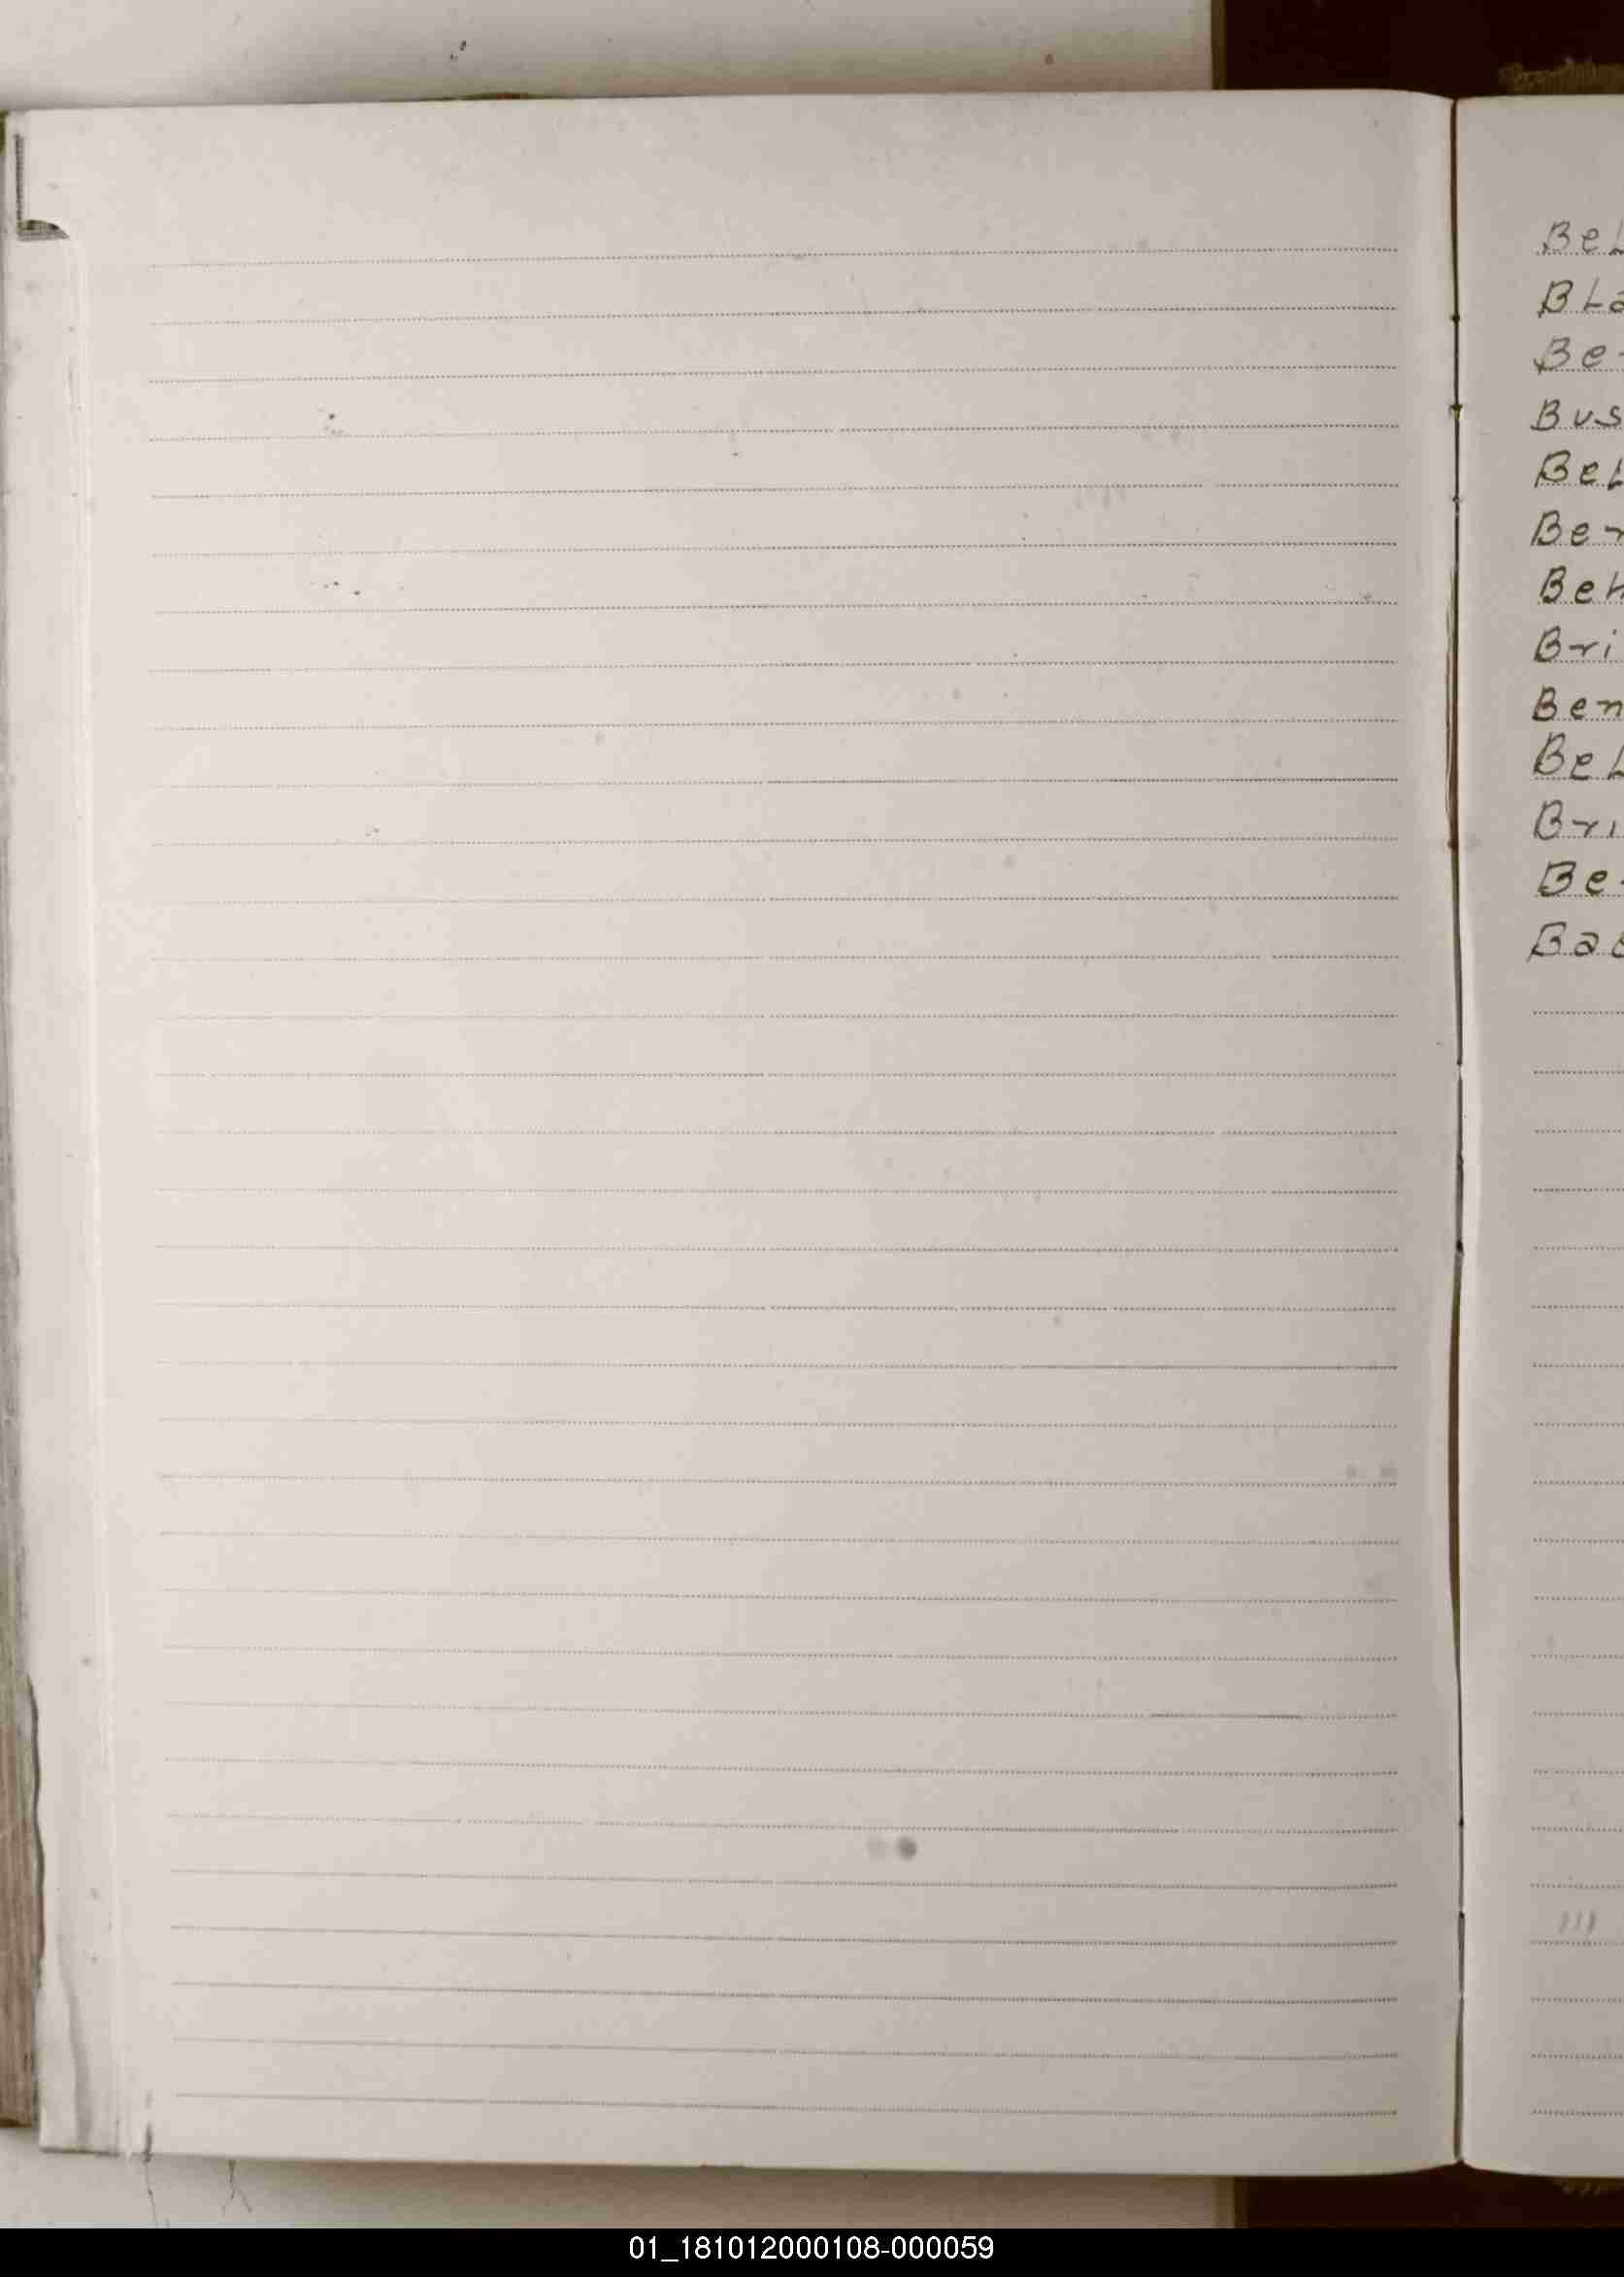 BeL
BLa
Be
Bus
BeL
Ber
BeH
Bri
Ben
BeL
Bri
Be
Bas
01_181012000108-000059